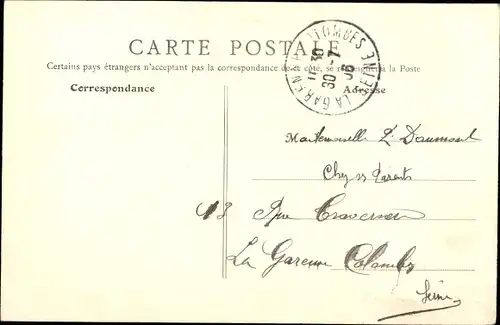 CARTE POSTALE
Certains pays étrangers n'acceptant pas la correspondance de ce côté, se renseigner à la Poste
Correspondance
Adresse
LA GARENNE-COLOMBES SEINE
30 -7
Mademoiselle L. Daumont
Chez ses Parents
Rue
La Garenne Colombes
Seine